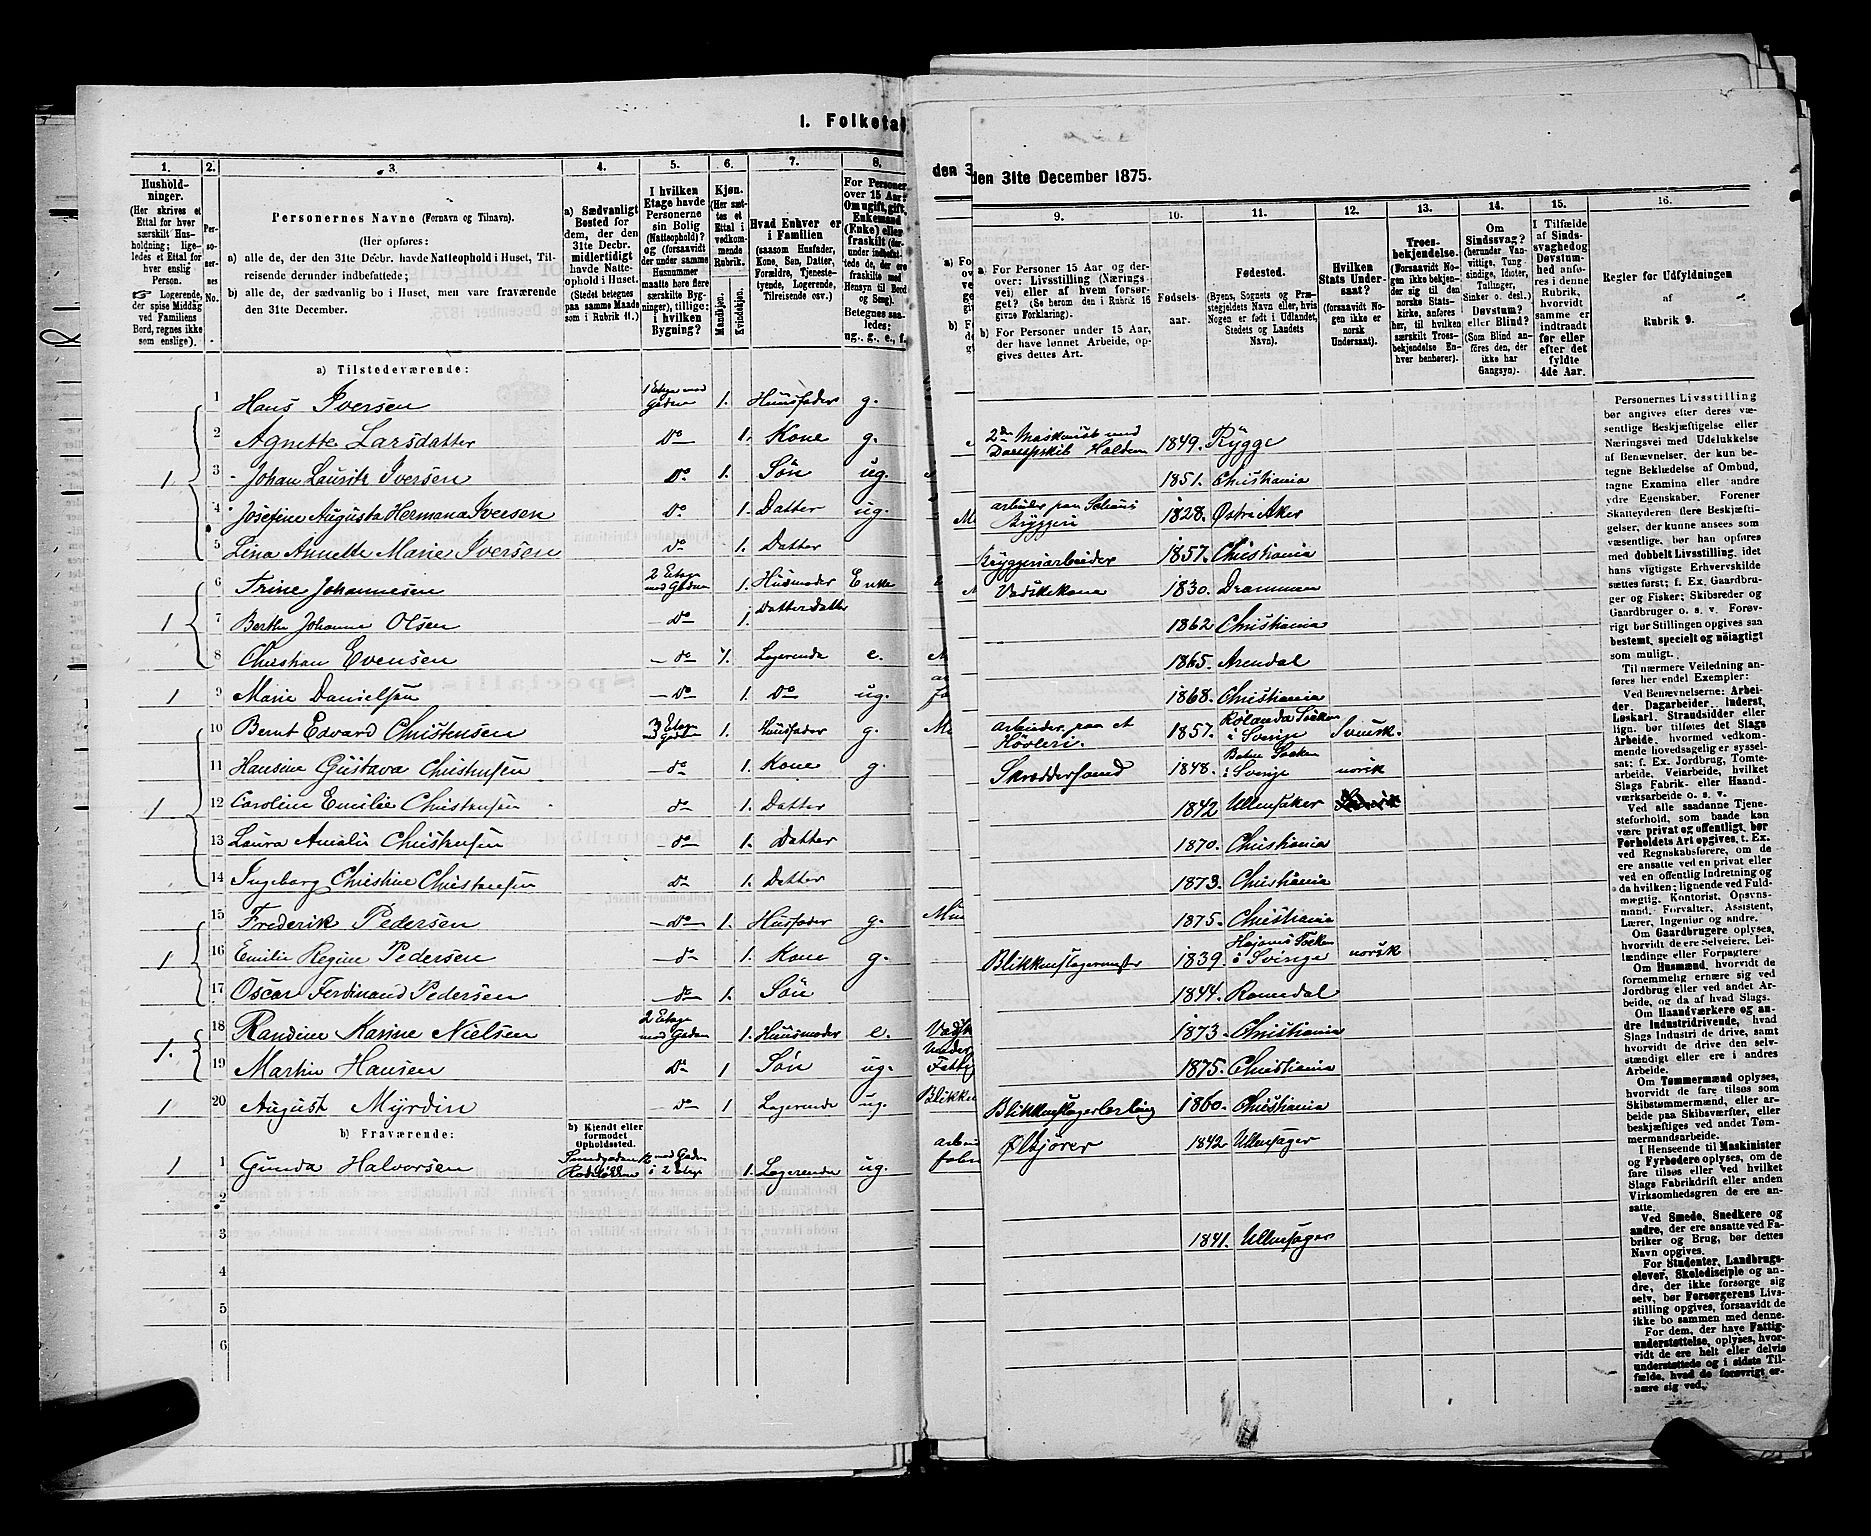 I. Folketal
1.
2.
3.
4.
5.
6.
7.
8.
Hushold-
ninger.
(Her skrives et
Ettal for hver
særskilt Hus-
holdning; lige-
ledes et Ettal for
hver enslig
Person.
☞ Logerende,
der spise Middag
ved Familiens
Bord, regnes ikke
som enslige).
Per-
so-
ner-
nes
No.
Personernes Navne (Fornavn og Tilnavn).
(Her opføres:
a) alle de, der den 31te Decbr. havde Natteophold i Huset, Til-
reisende derunder indbefattede;
b) alle de, der sædvanlig bo i Huset, men vare fraværende
den 31te December.
a) Sædvanligt
Bosted for
dem, der den
31te Decbr.
midlertidigt
havde Natte-
ophold i Huset.
(Stedet betegnes
paa samme Maade
som i Rubrik 11.)
I hvilken
Etage havde
Personerne
sin Bolig
(Natteophold)?
og (forsaavidt
der under samme
Husnummer
maatte høre flere
særskilte Byg-
ninger), tillige:
i hvilken
Bygning?
Kjøn.
(Her sæt-
tes et
Ettal i
vedkom-
mende
Rubrik.
Mandkjøn.
Kvindekjøn.
Hvad Enhver er
i Familien
(saasom Husfader,
Kone, Søn, Datter,
Forældre, Tjeneste-
tyende, Logerende,
Tilreisende osv.)
For Personer
over 15 Aar:
Om ugift, gift,
Enkemand
(Enke) eller
fraskilt (der-
under indbefat-
tede de, der ere
fraskilte med
Hensyn til Bord
og Seng).
Betegnes saa-
ledes:
ug., g., e., f.
a) Tilstedeværende:
1 Hans Iversen 1 Etage mod Gaden 1. Huusfader g.
2 Agnette Larsdatter Do 1. Kone g.
1 3 Johan Lauritz Iversen Do 1. Søn ug.
4 Josefine Augusta Hermana Iversen Do 1. Datter ug.
5 Lina Annette Marie Iversen do 1. Datter
6 Trine Johannesen 2 Etage mod Gaden 1. Husmoder Enke
1 7 Berthe Johanne Olsen Do 1. Datterdatter
8 Christian Evensen do 1. Logerende e.
1 9 Marie Danielsen Do 1. Do ug.
10 Bernt Edvard Christensen 3 Etage mod Gaden 1. Huusfader g.
11 Hansine Gustava Christensen do 1. Kone g.
1 12 Caroline Emilie Christensen do 1. Datter
13 Laura Amalie Christensen do 1. Datter
14 Ingeborg Christine Christensen do 1. Datter
15 Frederik Pedersen do 1. Husfader g.
1 16 Emilie Regine Pedersen do 1. Kone g.
17 Oscar Ferdinand Pedersen do 1. Søn
18 Randine Karine Nielsen 2 Etage mod Gaden 1. Huusmoder e.
1. 19 Martin Hansen Do 1 Søn ug.
1 20 August Myrdin do 1 Logerende ug.
b) Fraværende:
b) Kjendt eller
formodet
Opholdssted.
1 1 Gunda Halvorsen mod Gaden i 2 Etage 1. Logerende ug.
2
3
4
5
6
den 31te December 1875.
9.
10.
11.
12.
13.
14.
15.
16.
a) For Personer 15 Aar og der-
over: Livsstilling (Nærings-
vei) eller af hvem forsør-
get? (Se herom den i Rubrik 16
givne Forklaring).
b) For Personer under 15 Aar,
der have lønnet Arbeide, op-
gives dettes Art.
Fødsels-
aar.
Fødested.
(Byens, Sognets og Præ-
stegjeldets Navn eller, hvis
Nogen er født i Udlandet,
Stedets og Landets
Navn).
Hvilken
Stats Under-
saat?
(forsaavidt No-
gen ikke er
norsk
Undersaat).
Troes-
bekjendelse.
(Forsaavidt No-
gen ikke bekjen-
der sig til den
norske Stats-
kirke, anføres
her, til hvilken
særskilt Troes-
bekjendelse En-
hver henhører).
Om
Sindssvag?
(herunder Van-
vittige, Tung-
sindige, Idioter,
Tullinger,
Sinker o. desl.)
Døvstum?
eller Blind?
(Som Blind an-
føres den, der
ikke har
Gangsyn).
I Tilfælde
af Sinds-
svaghed og
Døvstum-
hed anfø-
res i denne
Rubrik,
hvorvidt
samme er
indtraadt
før eller
efter det
fyldte
4de Aar.
Regler for Udfyldningen
af
Rubrik 9.
2den Maskinist med Dampskib Halden 1849. Rygge
1851. Christiania
arbeider paa Schous Bryggeri 1828. Østre Aker
Bryggeriarbeider 1857. Christiania
Vadskekone 1830. Drammen
1862. Christiania
1865. Arendal
1868. Christiania
arbeider paa et Høvleri. 1857. i Sverige Svensk.
Skræddersvend 1848. i Sverige norsk
1842 Ullensaker
1870. Christiania
1873. Christiania
1875. Christiania
Blikkenslagermester 1839. i Sverige norsk
1844. Romedal
1873. Christiania
1875. Christiania
Blikkenslagerlerling 1860. Christiania
Ølkjører 1842. Ullensager
1841. Ullensager
Personernes Livsstilling
bør angives efter deres væ-
sentlige Beskjæftigelse eller
Næringsvei med Udelukkelse
af Benævnelser, der kun be-
tegne Beklædelse af Ombud,
tagne Examina eller andre
ydre Egenskaber. Forener
Skatteyderen flere Beskjæfti-
gelser, der kunne ansees som
væsentlige, bør han opføres
med dobbelt Livsstilling, idet
hans vigtigste Erhvervskilde
sættes først; f. Ex. Gaardbru-
ger og Fisker; Skibsreder og
Gaardbruger o. s. v. Forøv-
rigt bør Stillingen opgives saa
bestemt, specielt og nøiagtigt
som muligt.
Til nærmere Veiledning an-
føres her endel Exempler:
Ved Benævnelserne: Arbei-
der, Dagarbeider, Inderst,
Løskarl, Strandsidder eller
lign. bør tilføies det Slags
Arbeide, hvormed vedkom-
mende hovedsagelig er syssel-
sat; f. Ex. Jordbrug, Tomte-
arbeide, Veiarbeide, hvilket
Slags Fabrik- eller Haand-
værksarbeide o. s. v.
Ved alle saadanne Tjene-
steforhold, som baade kan
være privat og offentligt, bør
Forholdets Art opgives, t. Ex.
ved Regnskabsførere, om de
ere ansatte ved en privat eller
ved en offentlig Indretning og
da hvilken; lignende ved Fuld-
mægtig, Kontorist, Opsyns-
mand, Forvalter, Assistent,
Lærer, Ingeniør og andre.
Om Gaardbrugere oplyses,
hvorvidt de ere Selveiere, Lei-
lændinge eller Forpagtere
Om Husmænd, hvorvidt de
fornemmelig ernære sig ved
Jordbrug eller ved andet Ar-
beide, og da af hvad Slags.
Om Haandværkere og an-
dre Industridrivende, hvad
Slags Industri de drive, samt
hvorvidt de drive den selv-
stændigt eller ere i andres
Arbeide.
Om Tømmermænd oplyses,
hvorvidt de fare tilsøs som
Skibstømmermænd, eller ar-
beide paa Skibsværfter, eller
beskjæftiges ved andet Tøm-
mermandsarbeide.
I Henseende til Maskinister
og Fyrbødere oplyses, om de
fare tilsøs eller ved hvilket
Slags Fabrikdrift eller anden
Virksomhedsgren de ere an-
satte.
Ved Smede, Snedkere og
andre, der ere ansatte ved Fa-
briker og Brug, bør dettes
Navn opgives.
For Studenter, Landbrugs-
elever, Skoledisciple og an-
dre, der ikke forsørge sig
selv, bør Forsørgerens Livs-
stilling opgives, forsaavidt de
ikke bo sammen med denne.
For dem, der have Fattig-
understøttelse, oplyses, hvor-
vidt de ere helt eller delvis
understøttede og i sidste Til-
fælde, hvad de forøvrigt er-
nære sig ved.